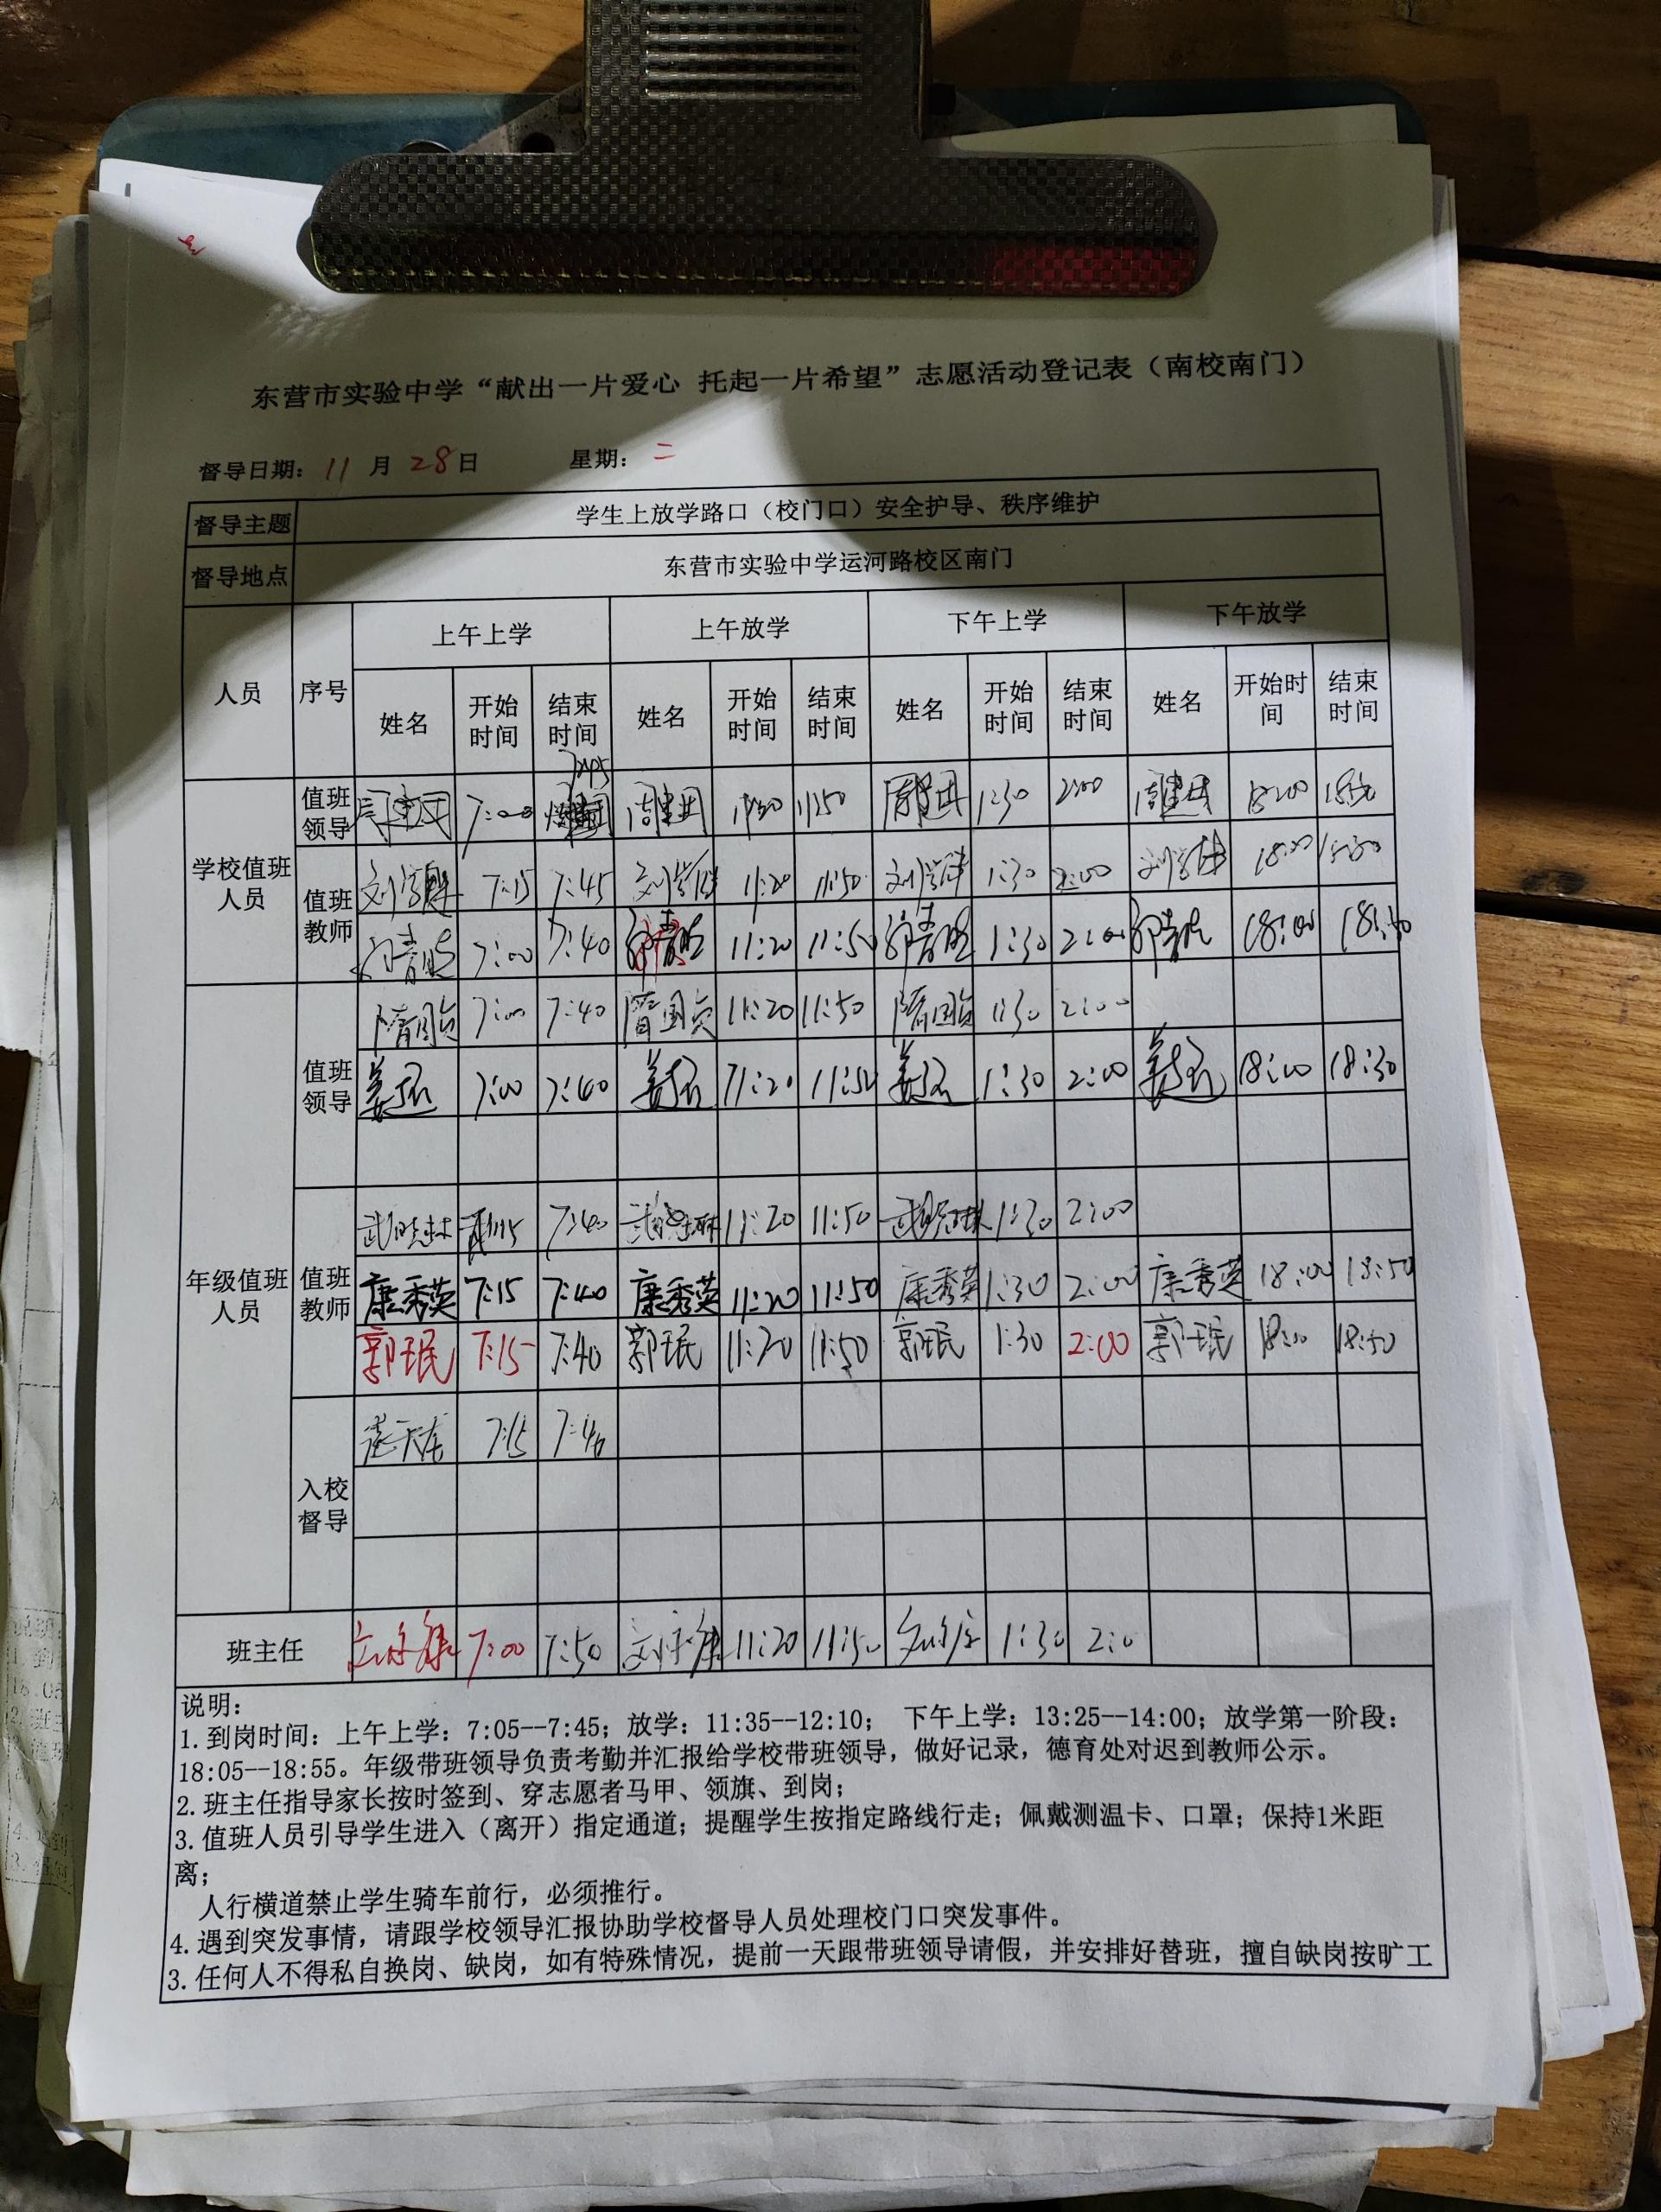 东营市实验中学“献出一片爱心 托起一片希望”志愿活动登记表（南校南门）
督导日期：11月28日 星期：二
督导主题 学生上放学路口（校门口）安全护导、秩序维护
督导地点 东营市实验中学运河路校区南门
人员 序号 上午上学 上午放学 下午上学 下午放学
姓名 开始时间 结束时间 姓名 开始时间 结束时间 姓名 开始时间 结束时间 姓名 开始时间 结束时间
学校值班人员
值班领导 周建国 7:00 周建国 周建国 1:30 2:00 周建国
值班教师 7:15 7:45 11:20 11:50 1:30 2:00 18:00
7:00 7:40 11:20 11:50 1:30 2:00 18:00
年级值班人员
值班领导 隋国 7:00 7:40 隋国 11:20 11:50 隋国 1:30 2:00
姜 7:00 7:40 姜 11:20 11:50 姜 1:30 2:00 姜 18:00 18:30
值班教师 武 7:40 武 11:20 11:50 武 1:30 2:00
康秀英 7:15 7:40 康秀英 11:20 11:50 康秀英 1:30 2:00 康秀英 18:00 18:50
郭珉 7:15 7:40 郭珉 11:20 11:50 郭珉 1:30 2:00 郭珉 18:00 18:50
入校督导 7:15
班主任 7:00 7:50 11:20 11:50 1:30
说明：
1.到岗时间：上午上学：7:05--7:45；放学：11:35--12:10； 下午上学：13:25--14:00；放学第一阶段：
18:05--18:55。年级带班领导负责考勤并汇报给学校带班领导，做好记录，德育处对迟到教师公示。
2.班主任指导家长按时签到、穿志愿者马甲、领旗、到岗；
3.值班人员引导学生进入（离开）指定通道；提醒学生按指定路线行走；佩戴测温卡、口罩；保持1米距
离；
人行横道禁止学生骑车前行，必须推行。
4.遇到突发事情，请跟学校领导汇报协助学校督导人员处理校门口突发事件。
3.任何人不得私自换岗、缺岗，如有特殊情况，提前一天跟带班领导请假，并安排好替班，擅自缺岗按旷工